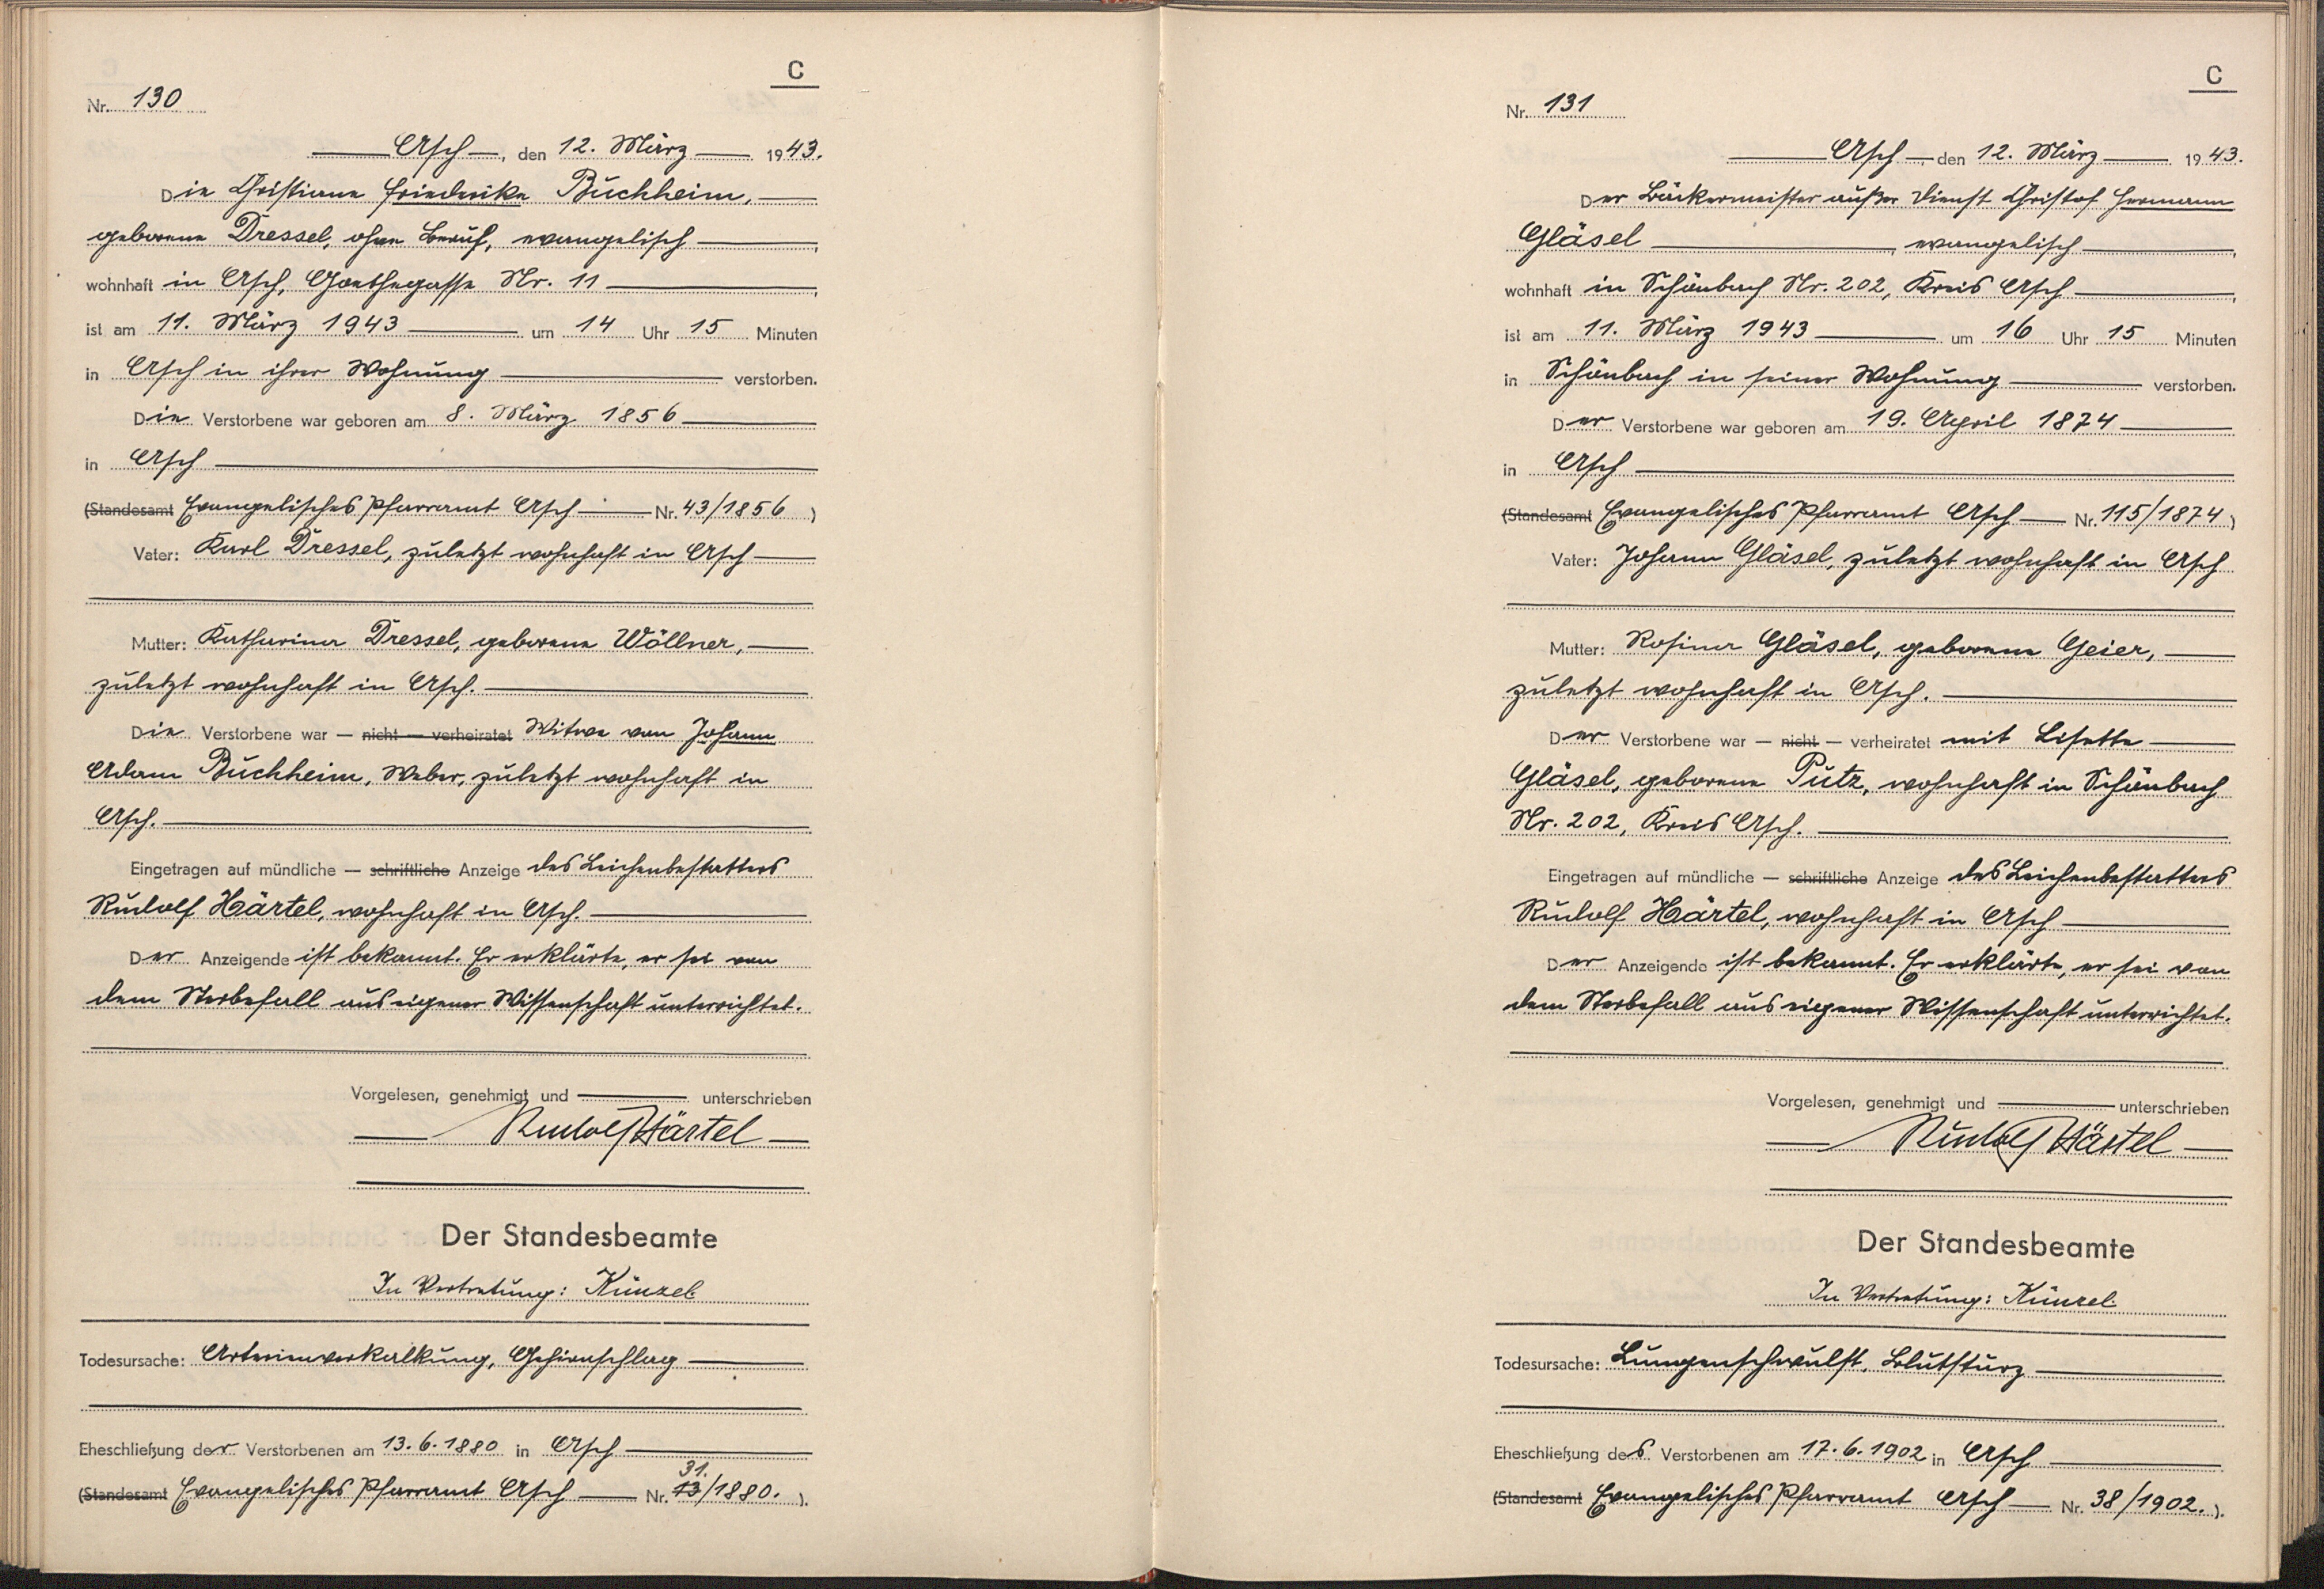 C
Nr. 130
Asch, den 12. März 1943.
Die Christiane Friederike Buchheim,
geborene Dressel, ohne Beruf, evangelisch,
wohnhaft in Asch, Goethegasse Nr. 11,
ist am 11. März 1943 um 14 Uhr 15 Minuten
in Asch in ihrer Wohnung verstorben.
Die Verstorbene war geboren am 8. März 1856
in Asch
(Standesamt Evangelisches Pfarramt Asch Nr. 43/1856)
Vater: Karl Dressel, zuletzt wohnhaft in Asch
Mutter: Katharina Dressel, geborene Wöllner,
zuletzt wohnhaft in Asch.
Die Verstorbene war — nicht — verheiratet Witwe von Johann
Adam Buchheim, Weber, zuletzt wohnhaft in
Asch.
Eingetragen auf mündliche — schriftliche Anzeige des Leichenbestatters
Rudolf Härtel, wohnhaft in Asch.
Der Anzeigende ist bekannt. Er erklärte, er sei von
dem Sterbefall aus eigener Wissenschaft unterrichtet.
Vorgelesen, genehmigt und unterschrieben
Rudolf Härtel
Der Standesbeamte
In Vertretung: Künzel
Todesursache: Arterienverkalkung, Gehirnschlag
Eheschließung der Verstorbenen am 13.6.1880 in Asch
31.
(Standesamt Evangelisches Pfarramt Asch Nr. 13/1880.).
C
Nr. 131
Asch, den 12. März 1943.
Der Bäckermeister außer Dienst Christof Hermann
Gläsel, evangelisch,
wohnhaft in Schönbach Nr. 202, Kreis Asch,
ist am 11. März 1943 um 16 Uhr 15 Minuten
in Schönbach in seiner Wohnung verstorben.
Der Verstorbene war geboren am 19. April 1874
in Asch
(Standesamt Evangelisches Pfarramt Asch Nr. 115/1874)
Vater: Johann Gläsel, zuletzt wohnhaft in Asch
Mutter: Rosina Gläsel, geborene Geier,
zuletzt wohnhaft in Asch.
Der Verstorbene war — nicht — verheiratet mit Lisette
Gläsel, geborene Putz, wohnhaft in Schönbach
Nr. 202, Kreis Asch.
Eingetragen auf mündliche — schriftliche Anzeige des Leichenbestatters
Rudolf Härtel, wohnhaft in Asch
Der Anzeigende ist bekannt. Er erklärte, er sei von
dem Sterbefall aus eigener Wissenschaft unterrichtet.
Vorgelesen, genehmigt und unterschrieben
Rudolf Härtel
Der Standesbeamte
In Vertretung: Künzel
Todesursache: Lungenschwulst, Blutsturz
Eheschließung des Verstorbenen am 17.6.1902 in Asch
(Standesamt Evangelisches Pfarramt Asch Nr. 38/1902.).